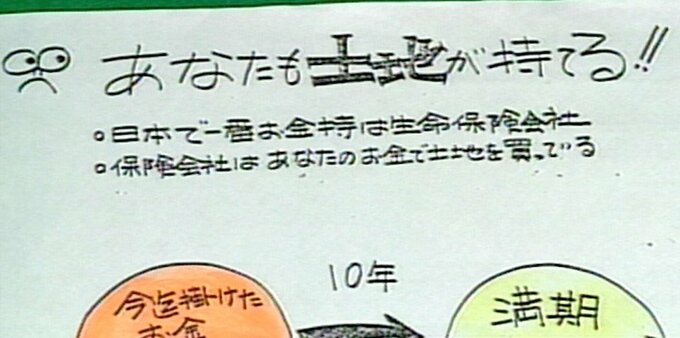 あなたも土地が持てる!!
。日本で一番お金持は生命保険会社
。保険会社はあなたのお金で土地を買っている
10年
今迄掛けた
お金
満期